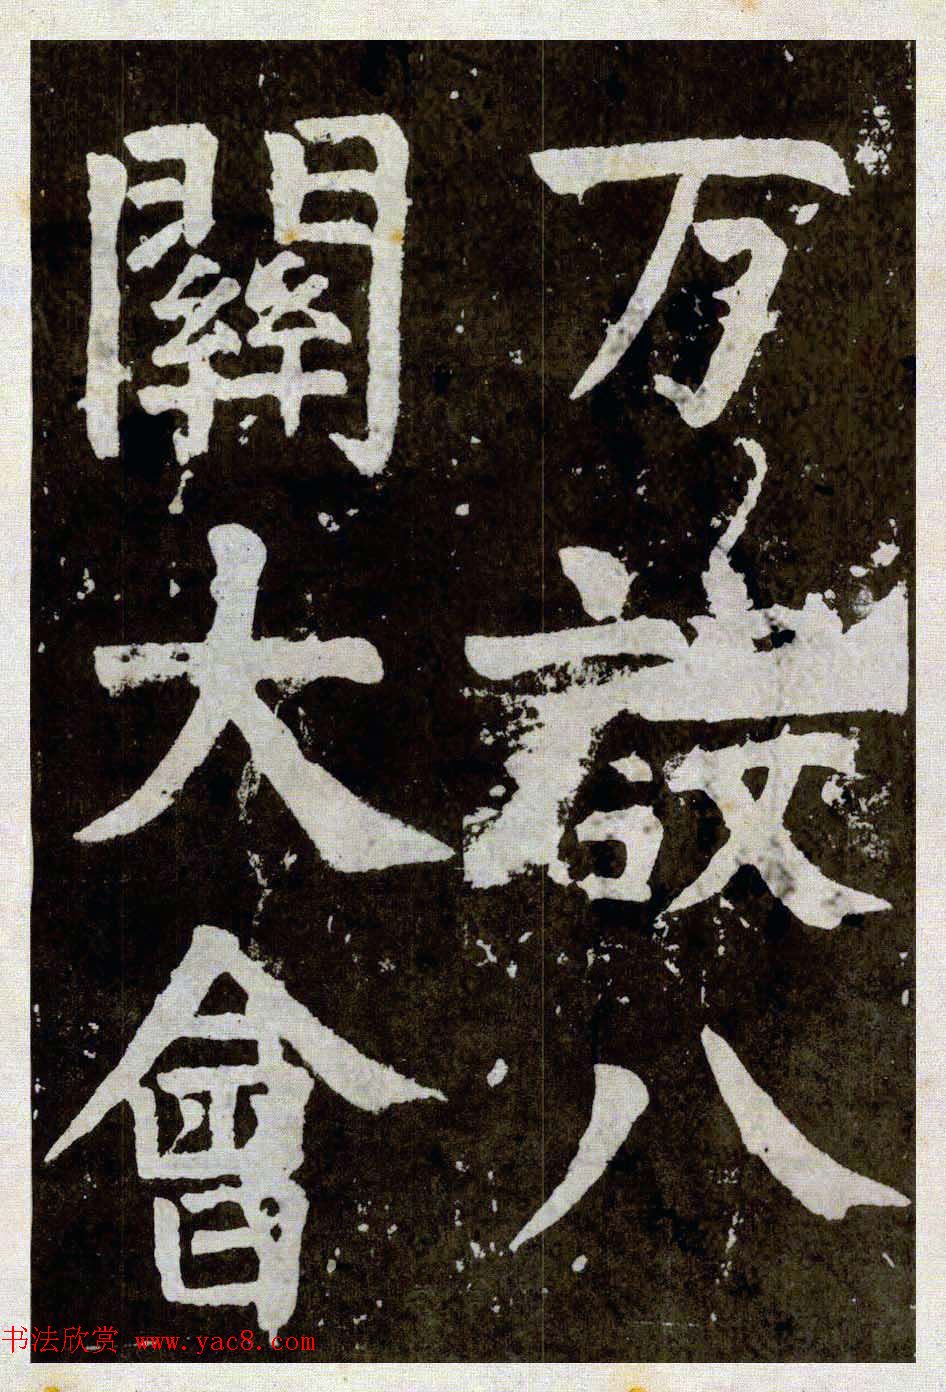 万設八
關大會
书法欣赏 www.yac8.com